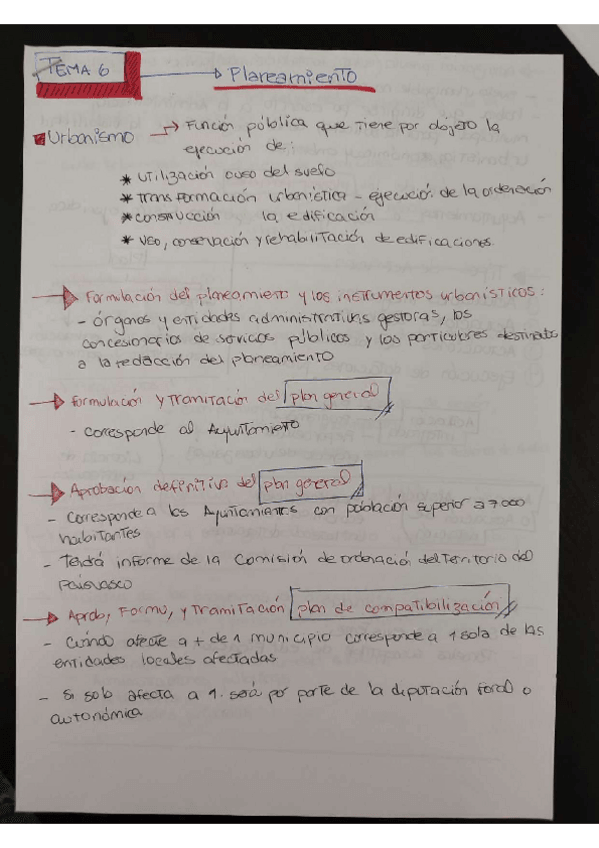 TEMA 6 → Planeamiento
Urbanismo → Función pública que tiene por objeto la
ejecución de:
* Utilización o uso del suelo
* Transformación urbanística - ejecución de la ordenación
* Construcción la edificación
* Uso, conservación y rehabilitación de edificaciones
→ Formulación del planeamiento y los instrumentos urbanísticos:
- órganos y entidades administrativas gestoras, los
concesionarios de servicios públicos y los particulares destinados
a la redacción del planeamiento
→ Formulación y tramitación del plan general
- Corresponde al Ayuntamiento
→ Aprobación definitiva del plan general
- Corresponde a los Ayuntamientos con población superior a 7.000
habitantes
- Tendrá informe de la Comisión de ordenación del Territorio del
País Vasco
→ Aprob, Formu, y Tramitación plan de compatibilización
- Cuándo afecte a + de 1 municipio corresponde a 1 sola de las
entidades locales afectadas
- Si solo afecta a 1. será por parte de la diputación foral o
autonómica